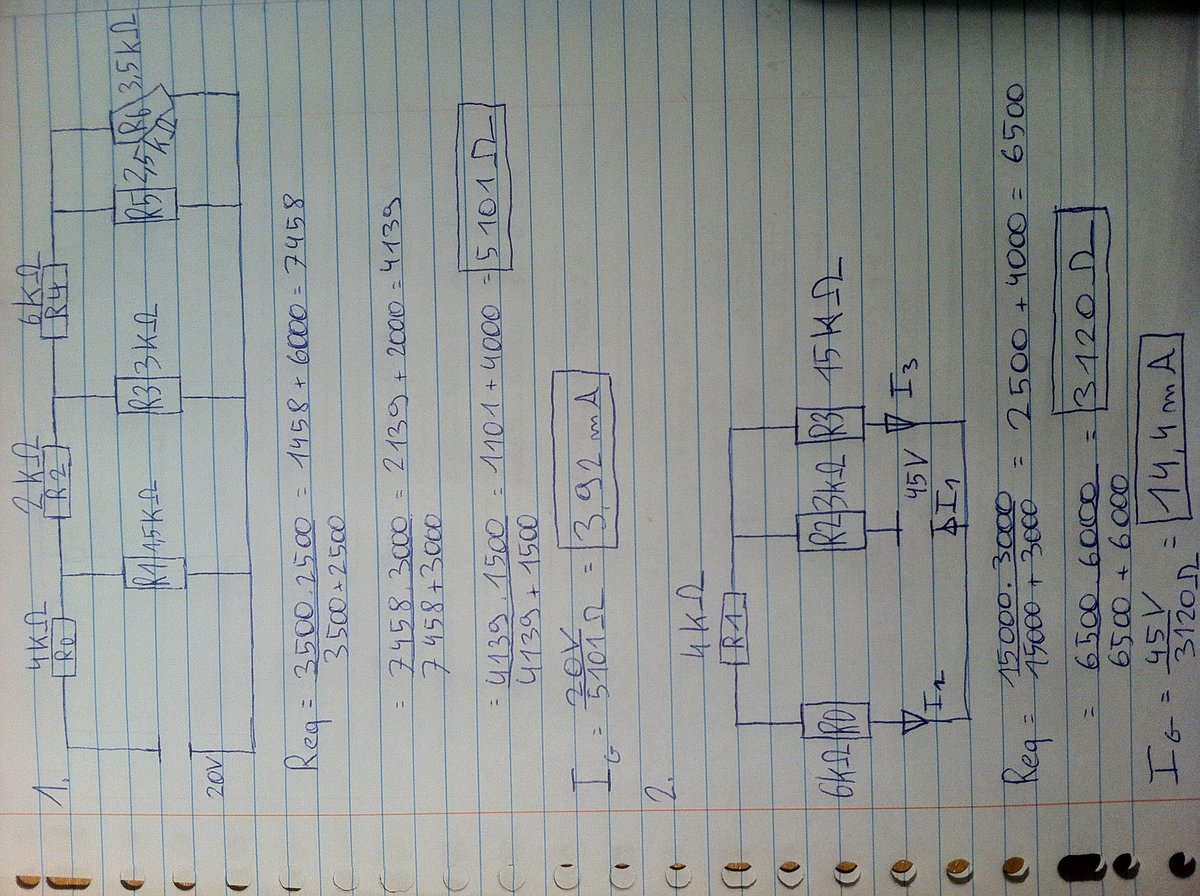 1.
4KΩ 2KΩ 6KΩ
R0 R2 R4
R1 1,5KΩ R3 3KΩ R5 2,5 KΩ R6 3,5KΩ
20V
Req = 3500.2500 / 3500+2500 = 1458 + 6000 = 7458
= 7458.3000 / 7458+3000 = 2139 + 2000 = 4139
= 4139.1500 / 4139+1500 = 1101 + 4000 = 5101 Ω
IG = 20V / 5101 Ω = 3,92 mA
2.
4KΩ
R1
6KΩ R0 R2 3KΩ R3 15KΩ
45V
I2 I1 I3
Req = 15000.3000 / 15000+3000 = 2500 + 4000 = 6500
= 6500.6000 / 6500+6000 = 3120 Ω
IG = 45V / 3120Ω = 14,4 mA